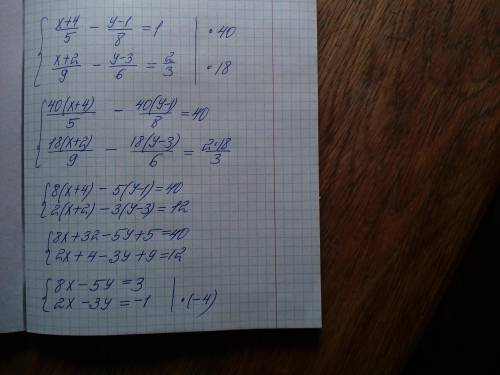 { (x+4)/5 - (y-1)/8 = 1 | ·40
{ (x+2)/9 - (y-3)/6 = 2/3 | ·18
{ 40(x+4)/5 - 40(y-1)/8 = 40
{ 18(x+2)/9 - 18(y-3)/6 = 2·18/3
{ 8(x+4) - 5(y-1) = 40
{ 2(x+2) - 3(y-3) = 12
{ 8x + 32 - 5y + 5 = 40
{ 2x + 4 - 3y + 9 = 12
{ 8x - 5y = 3
{ 2x - 3y = -1 | ·(-4)